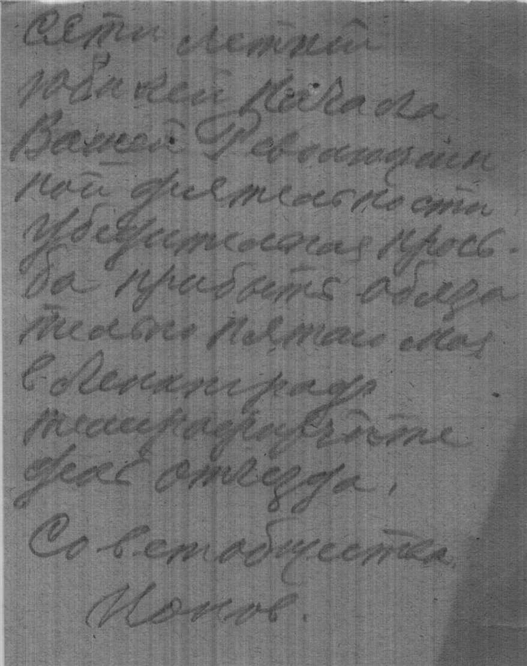 сети летний
юбилей начала
Вашей Революцион
ной деятельности
убедительная прось-
ба прибыть обяза
тельно пятаго мая
в Ленинград
телеграфируйте
день отъезда.
Совет общества
Ионов.